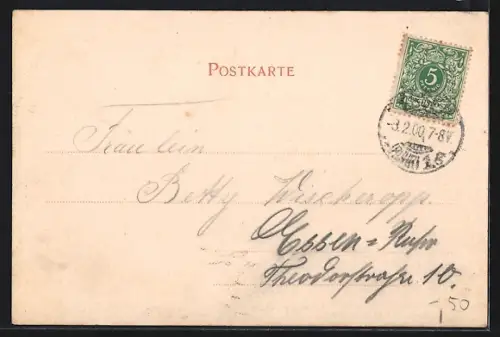 POSTKARTE
5
-3.2.00.7-8V.
15
Fräulein
Betty Wischeropp.
Essen=Ruhr
Theodorstraße 10.
50